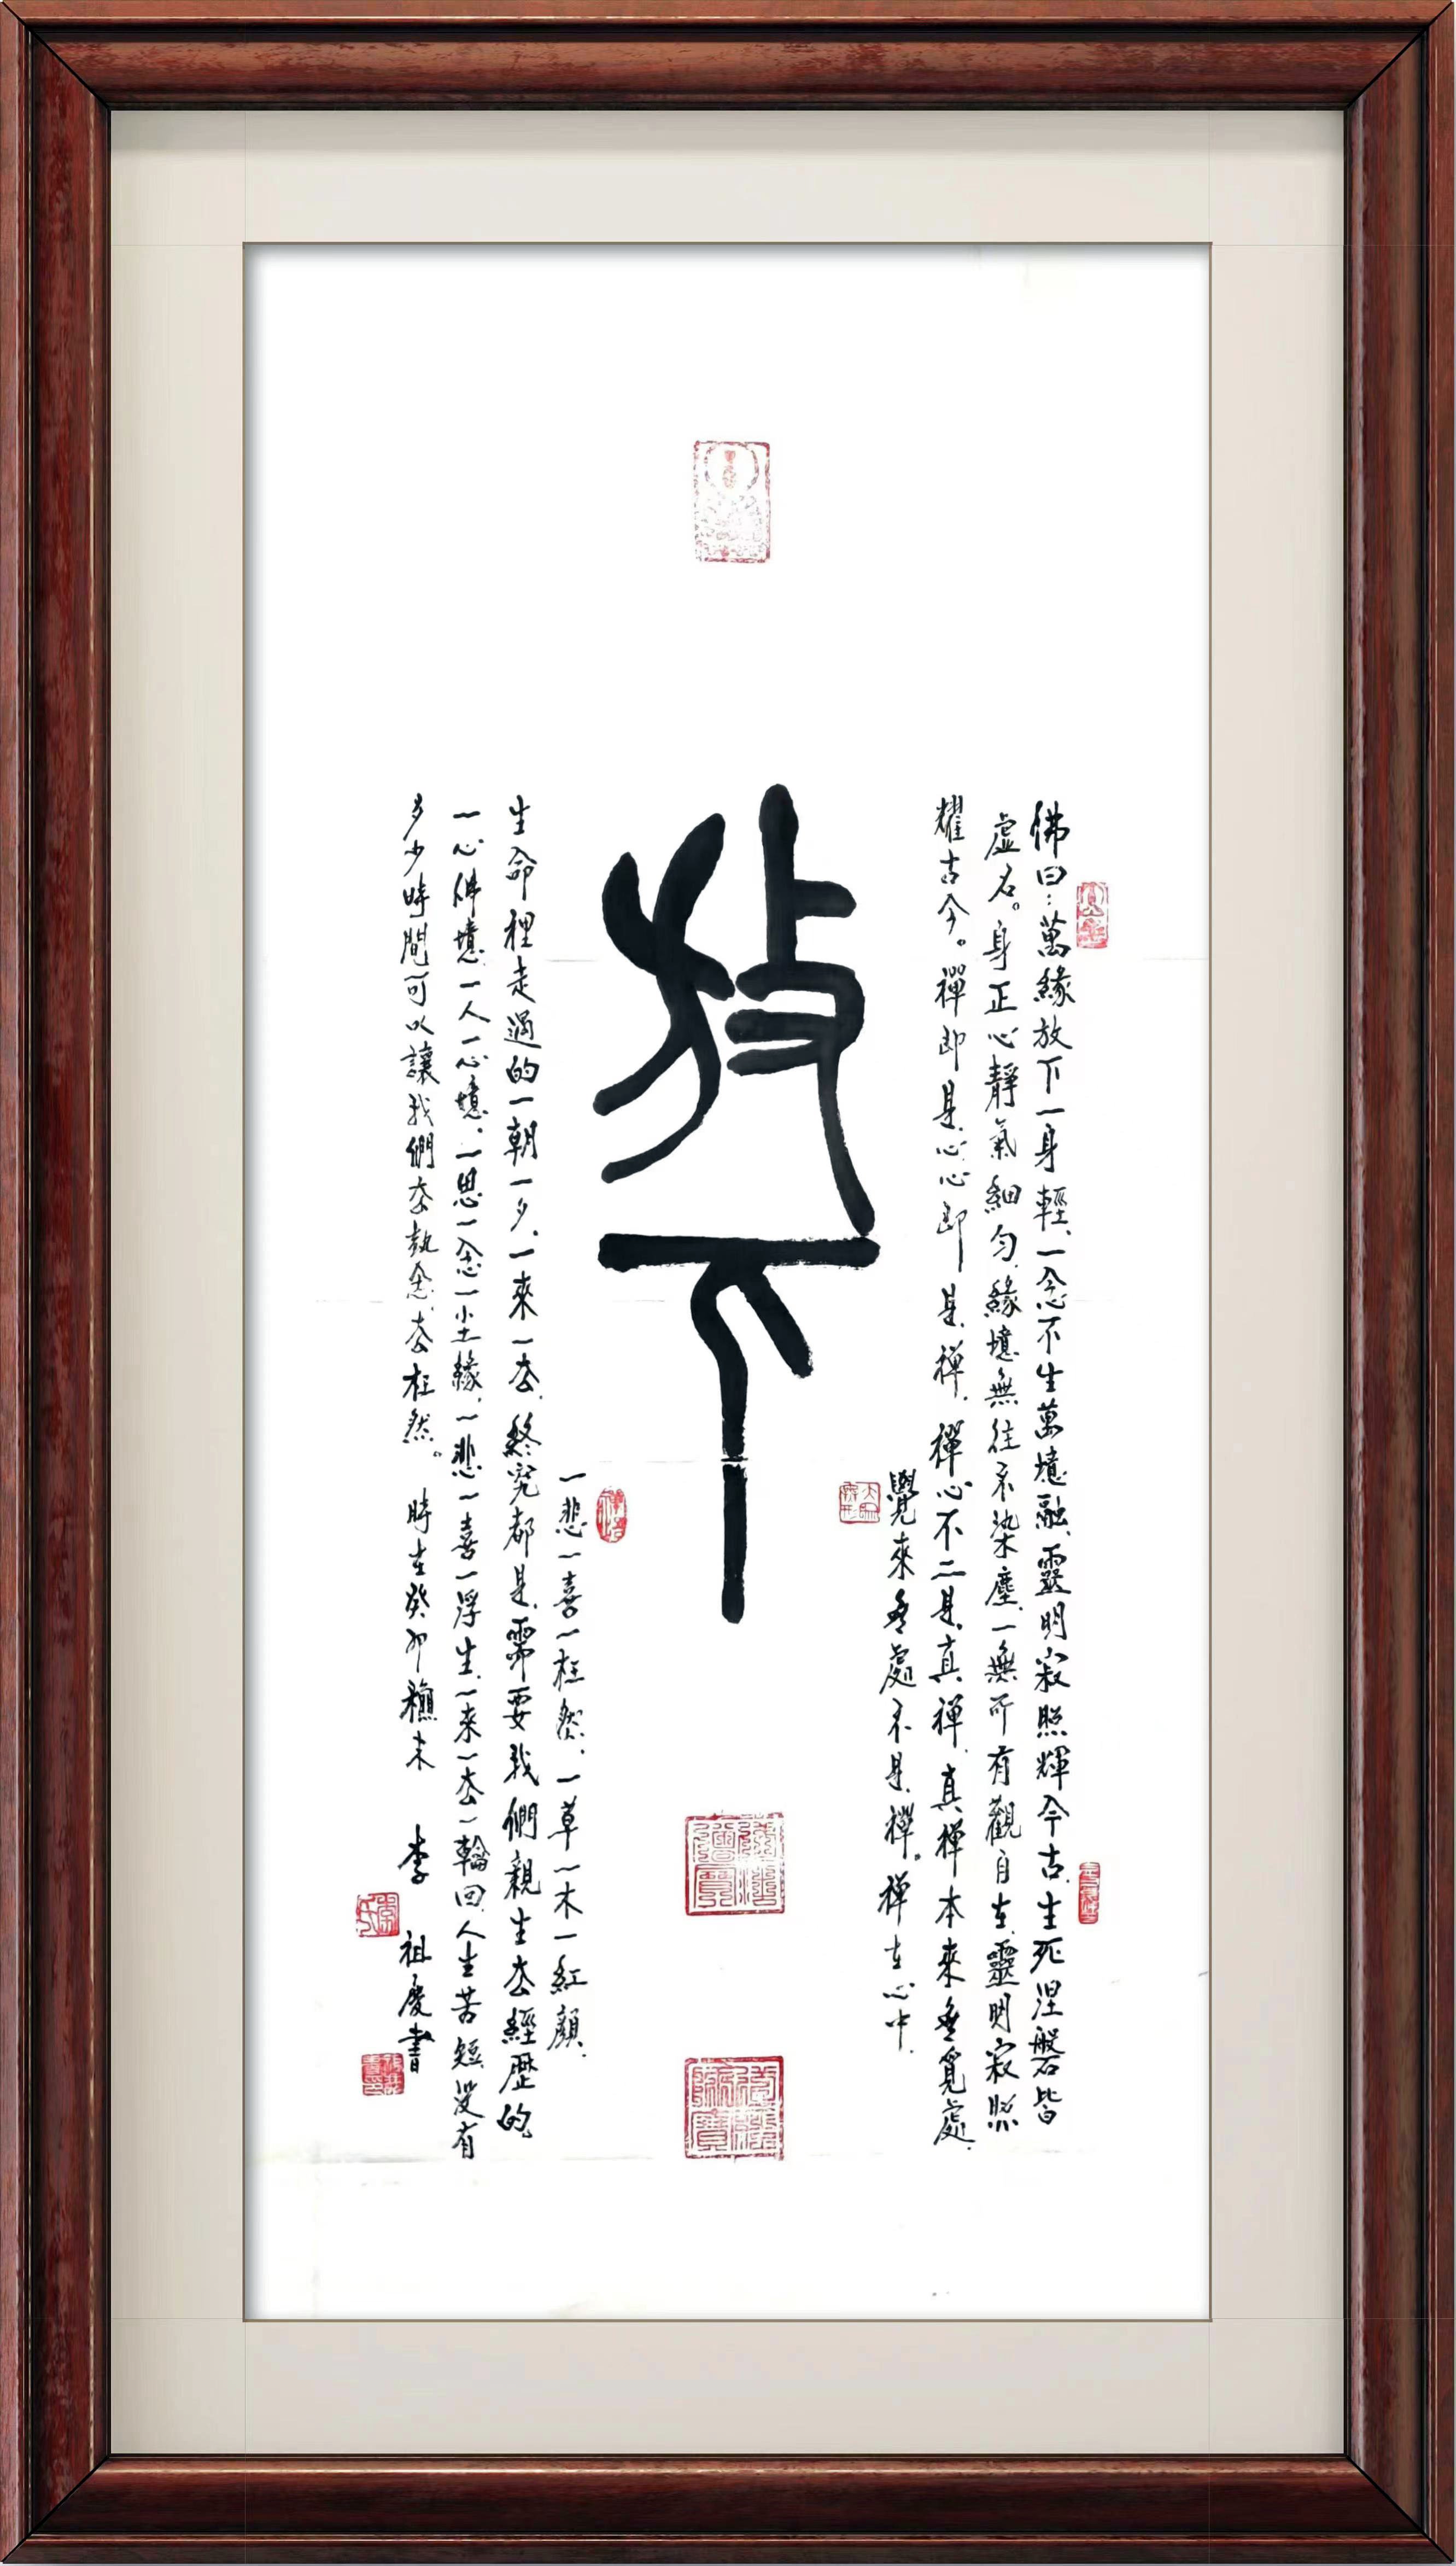 佛曰：萬緣放下一身輕、一念不生萬境融、靈明寂照輝今古、生死涅磐皆
虛名。身正心靜氣細匀、緣境無往不染塵、一無所有觀自在、靈明寂照
耀古今。禪即是心、心即是禅、禪心不二是真禅、真禅本來無覓處、
覺來無處不是禪。禅在心中、
放下
一悲一喜一枉然、一草一木一紅顏、
生命裡走過的一朝一夕、一來一去、終究都是需要我們親生去經歷的、
一心件境、一人一心境、一思一念一尘緣、一悲一喜一浮生、一来一去一輪回、人生苦短、沒有
多少時間可以讓我們去執念、去枉然。 時在癸卯穐末 李祖慶書